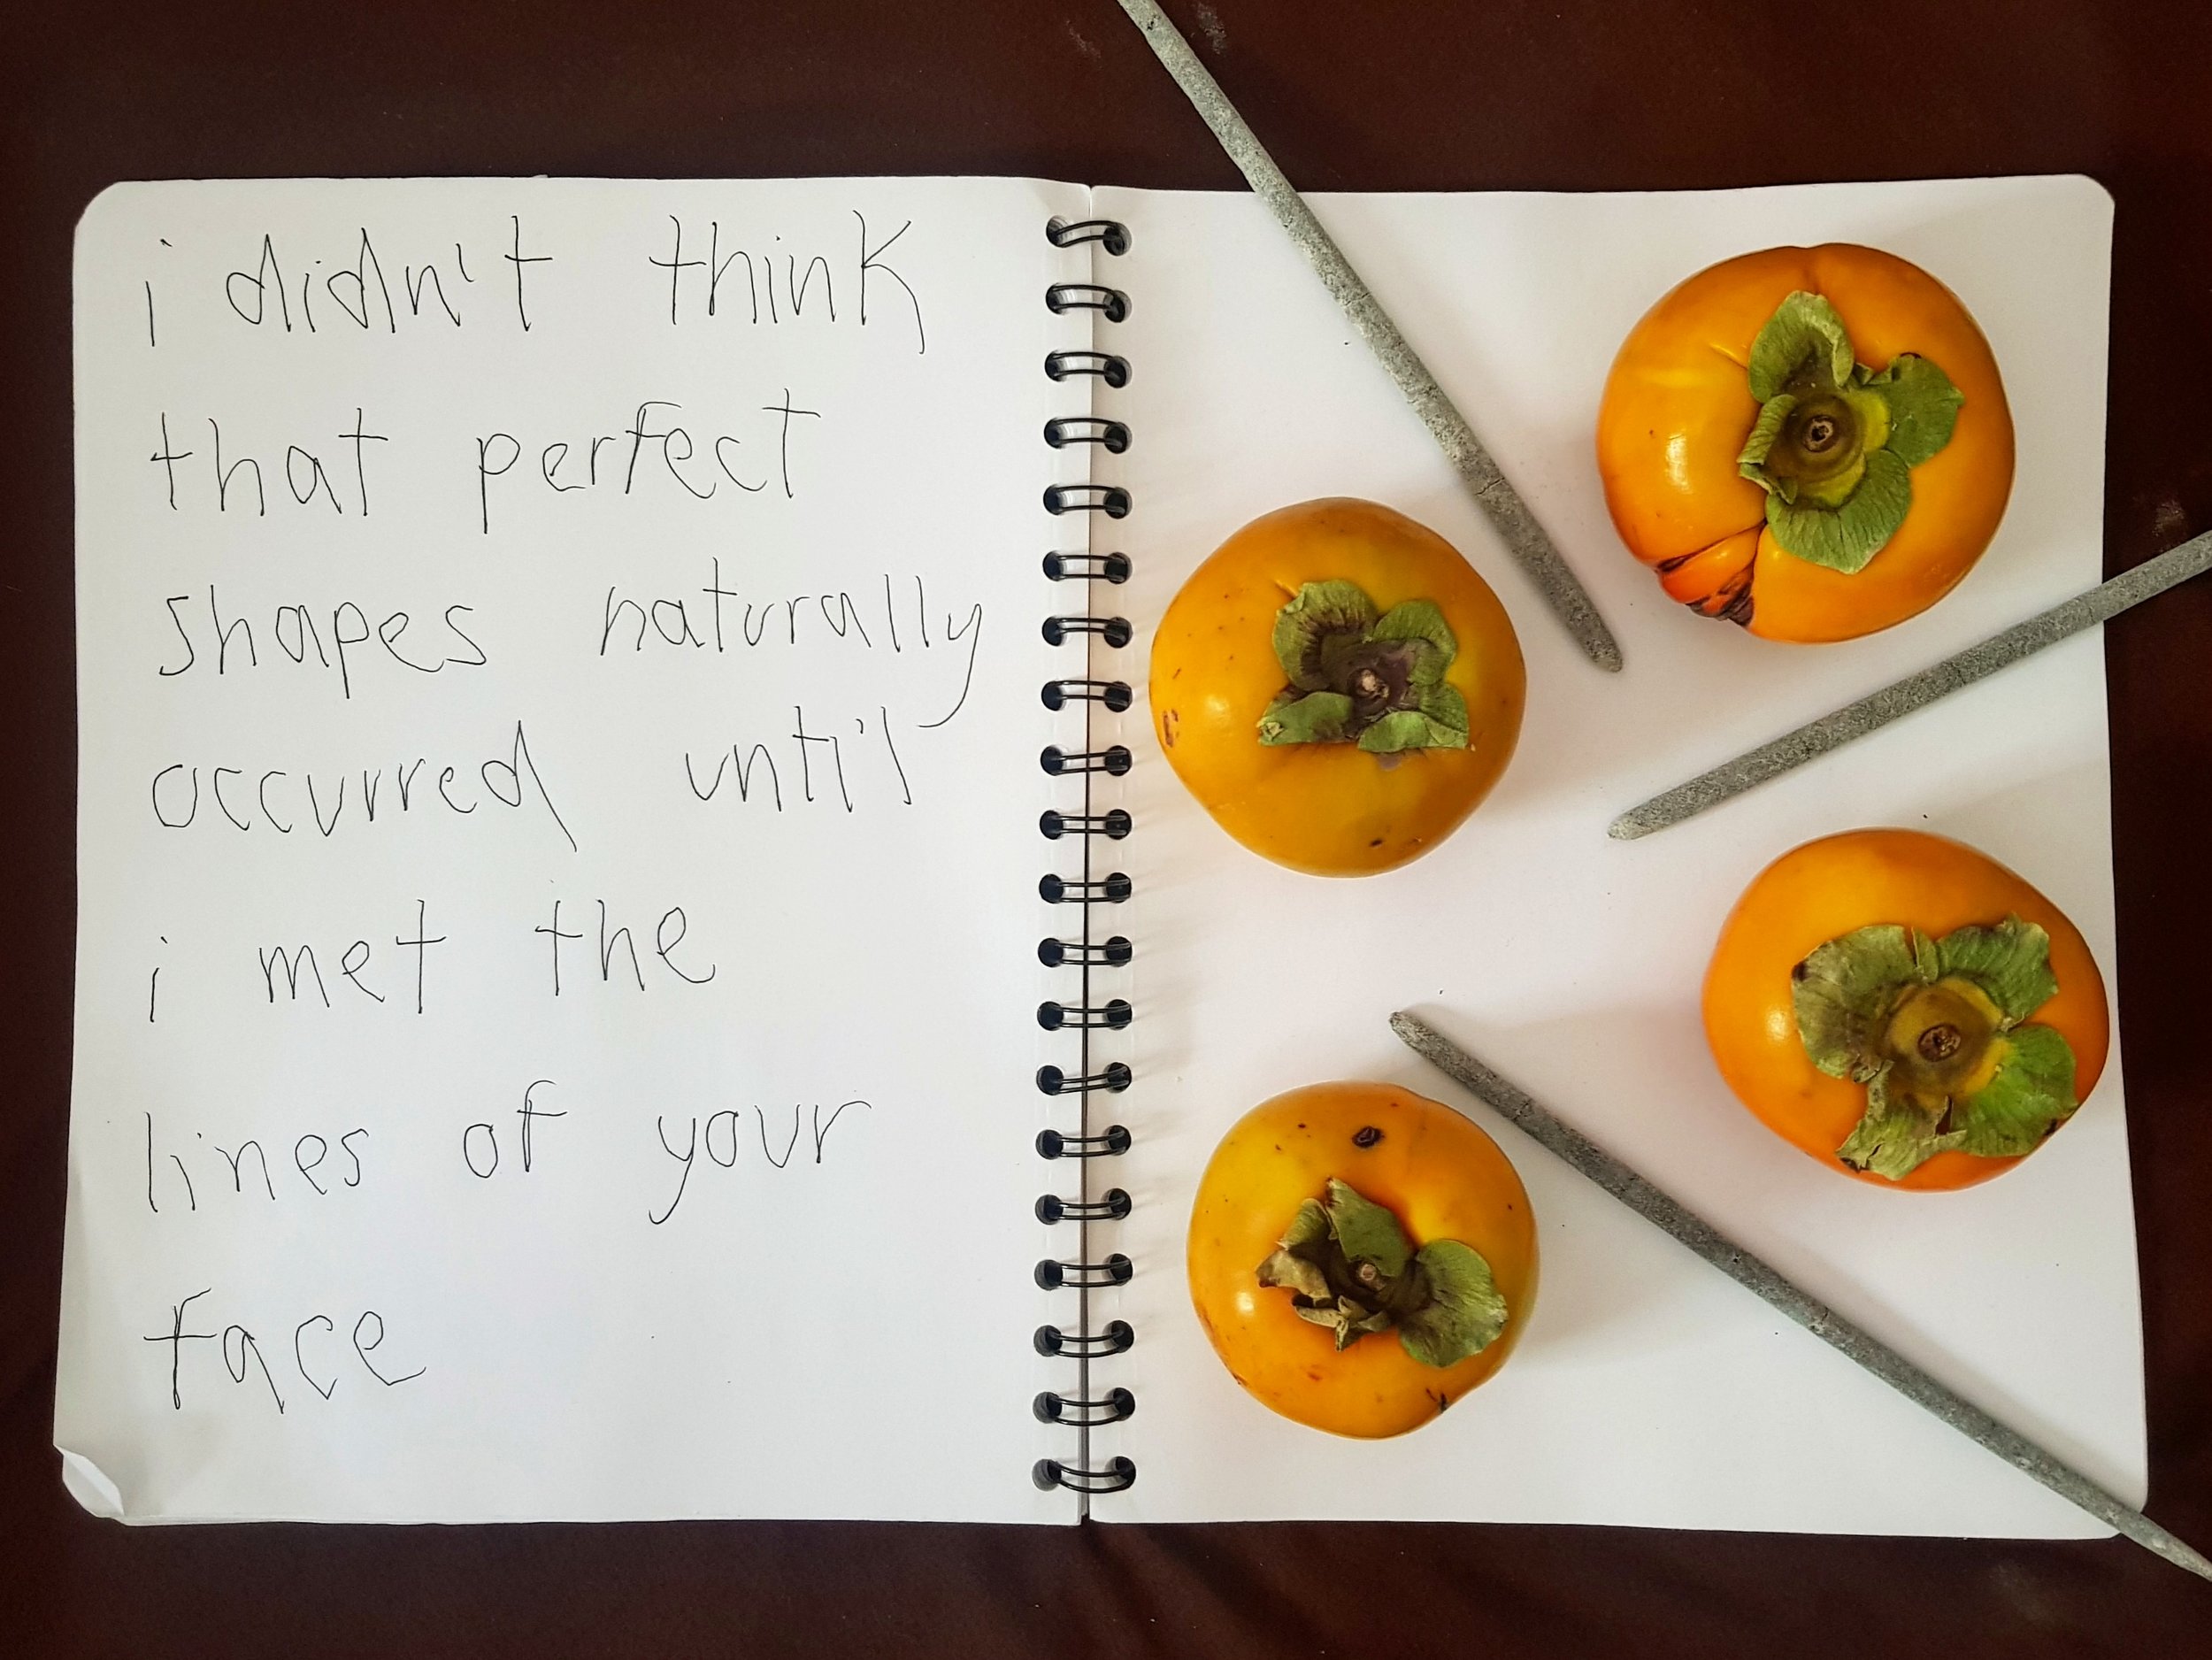 i didn't think
that perfect
shapes naturally
occurred until
i met the
lines of your
face